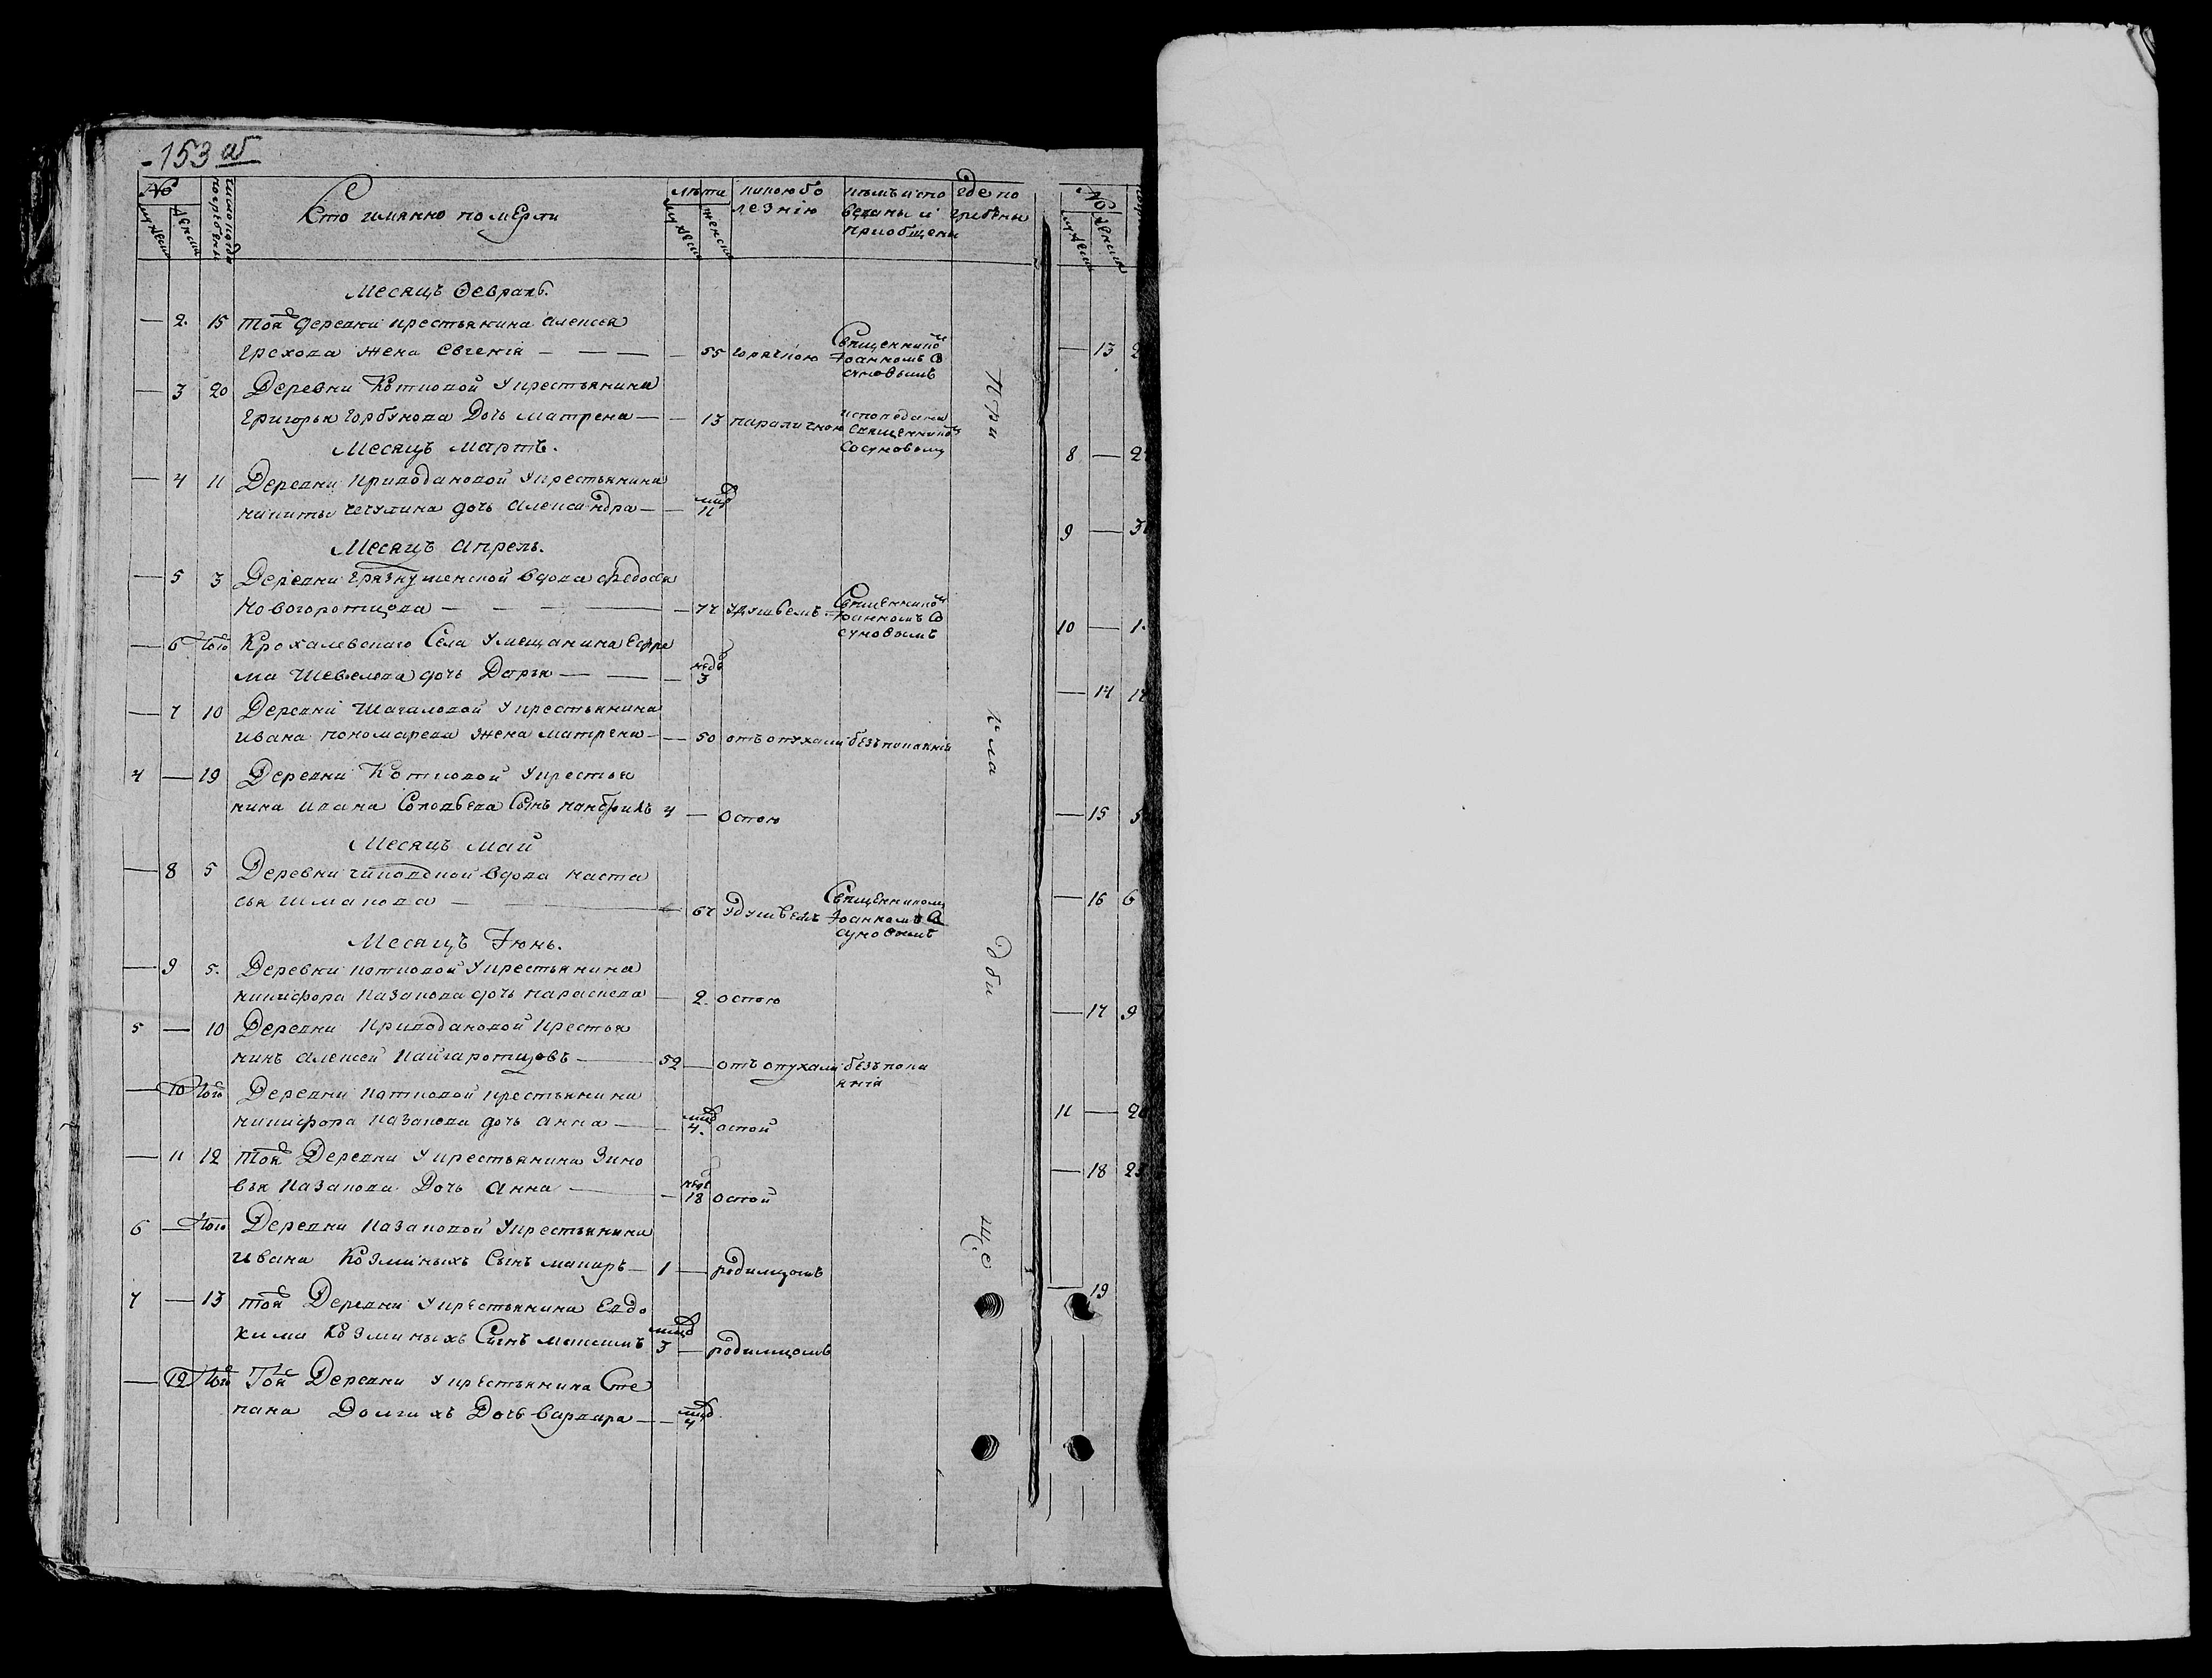 153 об
№ мужеск женска число когда погребены Кто имянно померли лѣта мужеск женска какою бо
лезнію кѣмъ испо
веданы и
приобщены где по
гребены
Месяцъ Февраль.
— 2. 15 той деревни крестьянина Алексея
Грехова жена Евгенія — — — — 55 горячкою Священником
Іоанномъ Со
суновымъ
— 3 20 Деревни Котковой у крестьянина
Григорья Горбунова Дочь Матрена — — 13 параличною исповедана
священником
Сосуновымъ
Месяцъ Мартъ.
— 4 11 Деревни Приводановой у крестьянина
Никиты Чечулина дочь Александра — — мцо 11
Месяцъ Апрель.
— 5 3 Деревни Грязнушенской вдова Федосья
Новогоротцова — — — — 77 удушьемъ Священником
Іоанномъ Со
суновымъ
— 6 того Крохалевскаго Села у мещанина Ефре
ма Шевелева дочь Дарья — — — нед 3
— 7 10 Деревни Шачаловой у крестьянина
Ивана Пономарева жена Матрена — — 50 отъ опухали безъ покаянія
4 — 19 Деревни Котковой у крестья
нина Ивана Соловьева Сынъ 4 — оспою
Месяцъ Май
— 8 5 Деревни вдова Наста
сья Шмакова — — 67 удушьемъ Священникомъ
Іоанномъ Со
суновымъ
Месяцъ Іюнь.
— 9 5. Деревни Котковой у крестьянина
Никифора Казакова дочь Параскева — 2. оспою
5 — 10 Деревни Приводановой крестья
нинъ Алексей Кайгаротцовъ — 52 — отъ опухали безъ пока
янія
— 10 того Деревни Котковой крестьянина
Никифора Казакова дочь Анна — — мцо 4. оспой
— 11 12 той Деревни у крестьянина Зино
вья Казакова Дочь Анна — — нед 18 оспой
6 — того Деревни Казаковой у крестьянина
Ивана Козминыхъ Сынъ Макаръ — 1 — родимцомъ
7 — 13 той Деревни у крестьянина Евдо
кима Козминыхъ Сынъ Максимъ мцо 3 — родимцомъ
— 12 того Той Деревни у крестьянина Сте
пана Долгихъ Дочь Варвара — — мцд 4
При
кла
дби
ще
№ мужеск женска
— 13 2
8 —
9 — 3
10 — 1
— 14 1
— 15 5
— 16 6
— 17 9
11 — 2
— 18 2
— 19